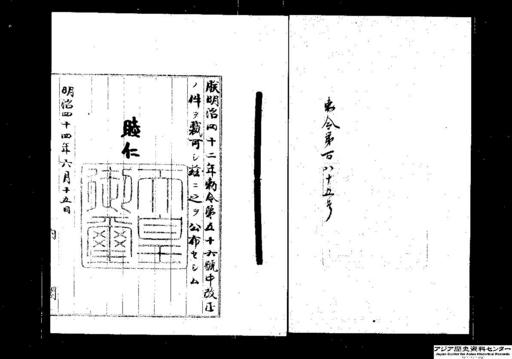 勅令第百八十五号
朕明治四十二年勅令第五十六號中改正
ノ件ヲ裁可シ茲ニ之ヲ公布セシム
睦仁
天皇御璽
明治四十四年六月十五日
内閣
アジア歴史資料センター
Japan Center for Asian Historical Records